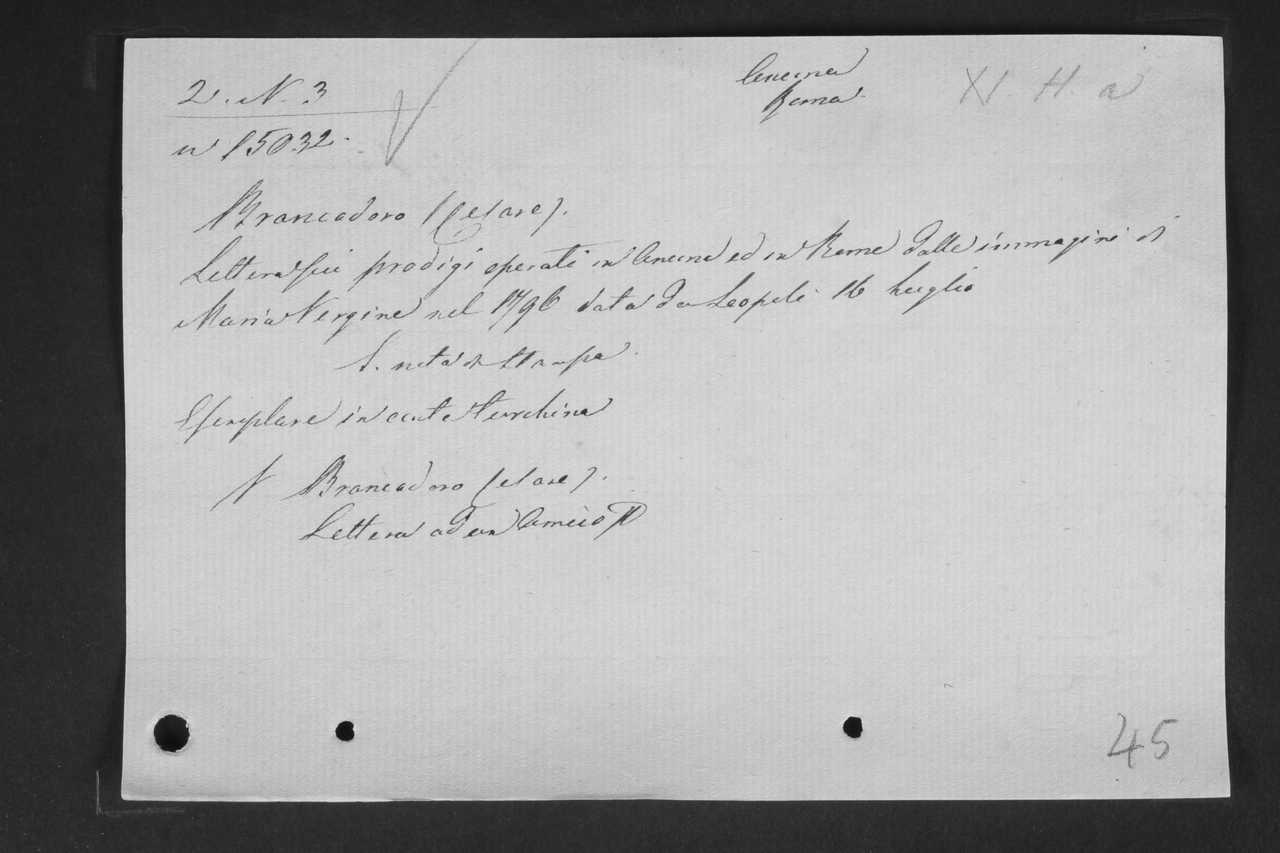 2. N. 3
Ancona
Roma
XI. H. a
n 15032.
Brancadoro (Cesare).
Lettera sui prodigi operati in Ancona ed in Roma dalle immagini di
Maria Vergine nel 1796 data da Leopoli 16 luglio
S. nota di stampa.
Esemplare in carta turchina
Brancadoro (Cesare).
Lettera ad un Amico
45